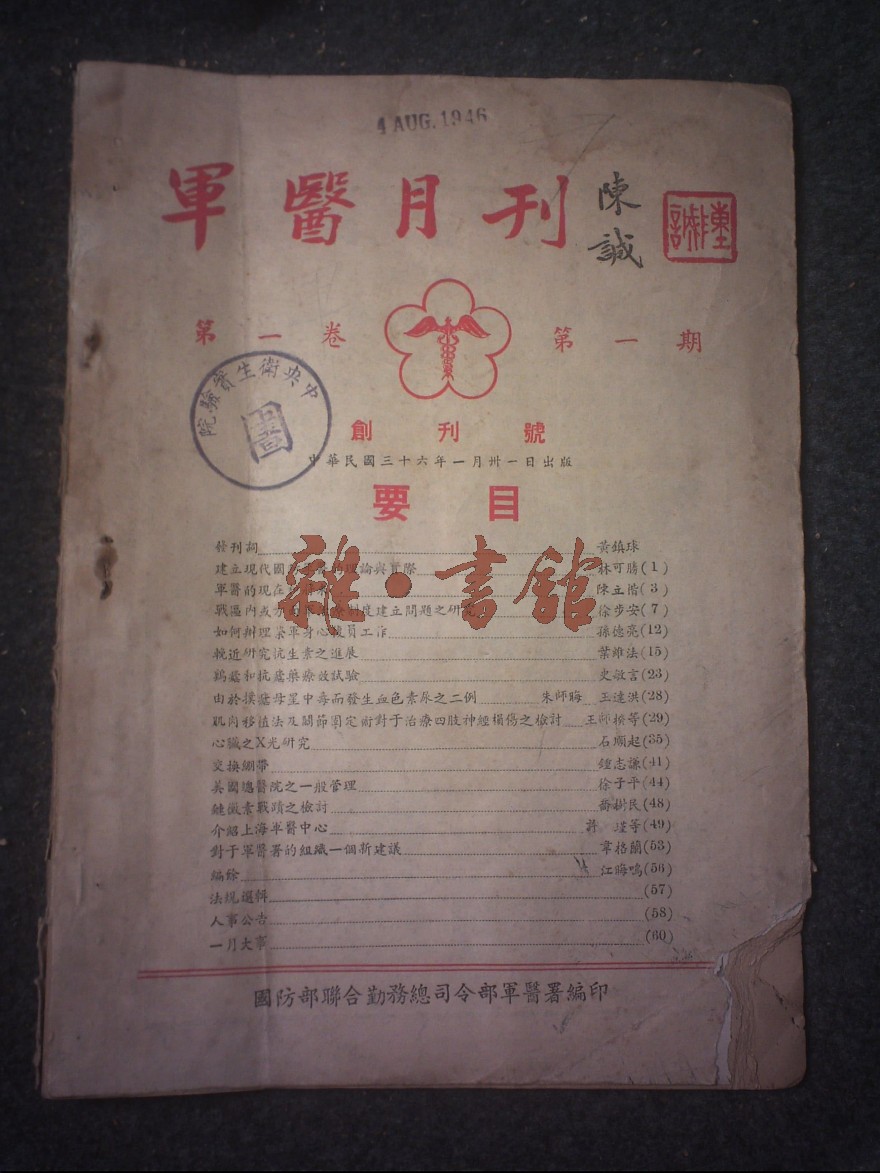 4 AUG. 1946
軍醫月刊
陳誠
陳誠
第一卷 第一期
中央衛生實驗院
圖
創刊號
中華民國三十六年一月卅一日出版
要目
發刊詞 黃鎮球
建立現代國 論與實際 林可勝(1)
軍醫的現在 陳立楷(3)
戰區內或方 療制度建立問題之研究 徐步安(7)
如何辦理榮軍身心 員工作 孫德亮(12)
輓近研究抗生素之進展 葉維法(15)
鷄瘧和抗瘧藥療效試驗 史敏言(23)
由於撲瘧母星中毒而發生血色素尿之二例 朱師晦 王達洪(28)
肌肉移植法及關節固定術對于治療四肢神經損傷之檢討 王師揆等(29)
心臟之X光研究 石順起(35)
交換綳帶 鍾志謙(41)
美國總醫院之一般管理 徐子平(44)
鏈黴素戰蹟之檢討 樹民(48)
介紹上海軍醫中心 許 瑾等(49)
對于軍醫署的組織一個新建議 韋格蘭(53)
編餘 江晦鳴(56)
法規選輯 (57)
人事公告 (58)
一月大事 (60)
雜·書館
國防部聯合勤務總司令部軍醫署編印